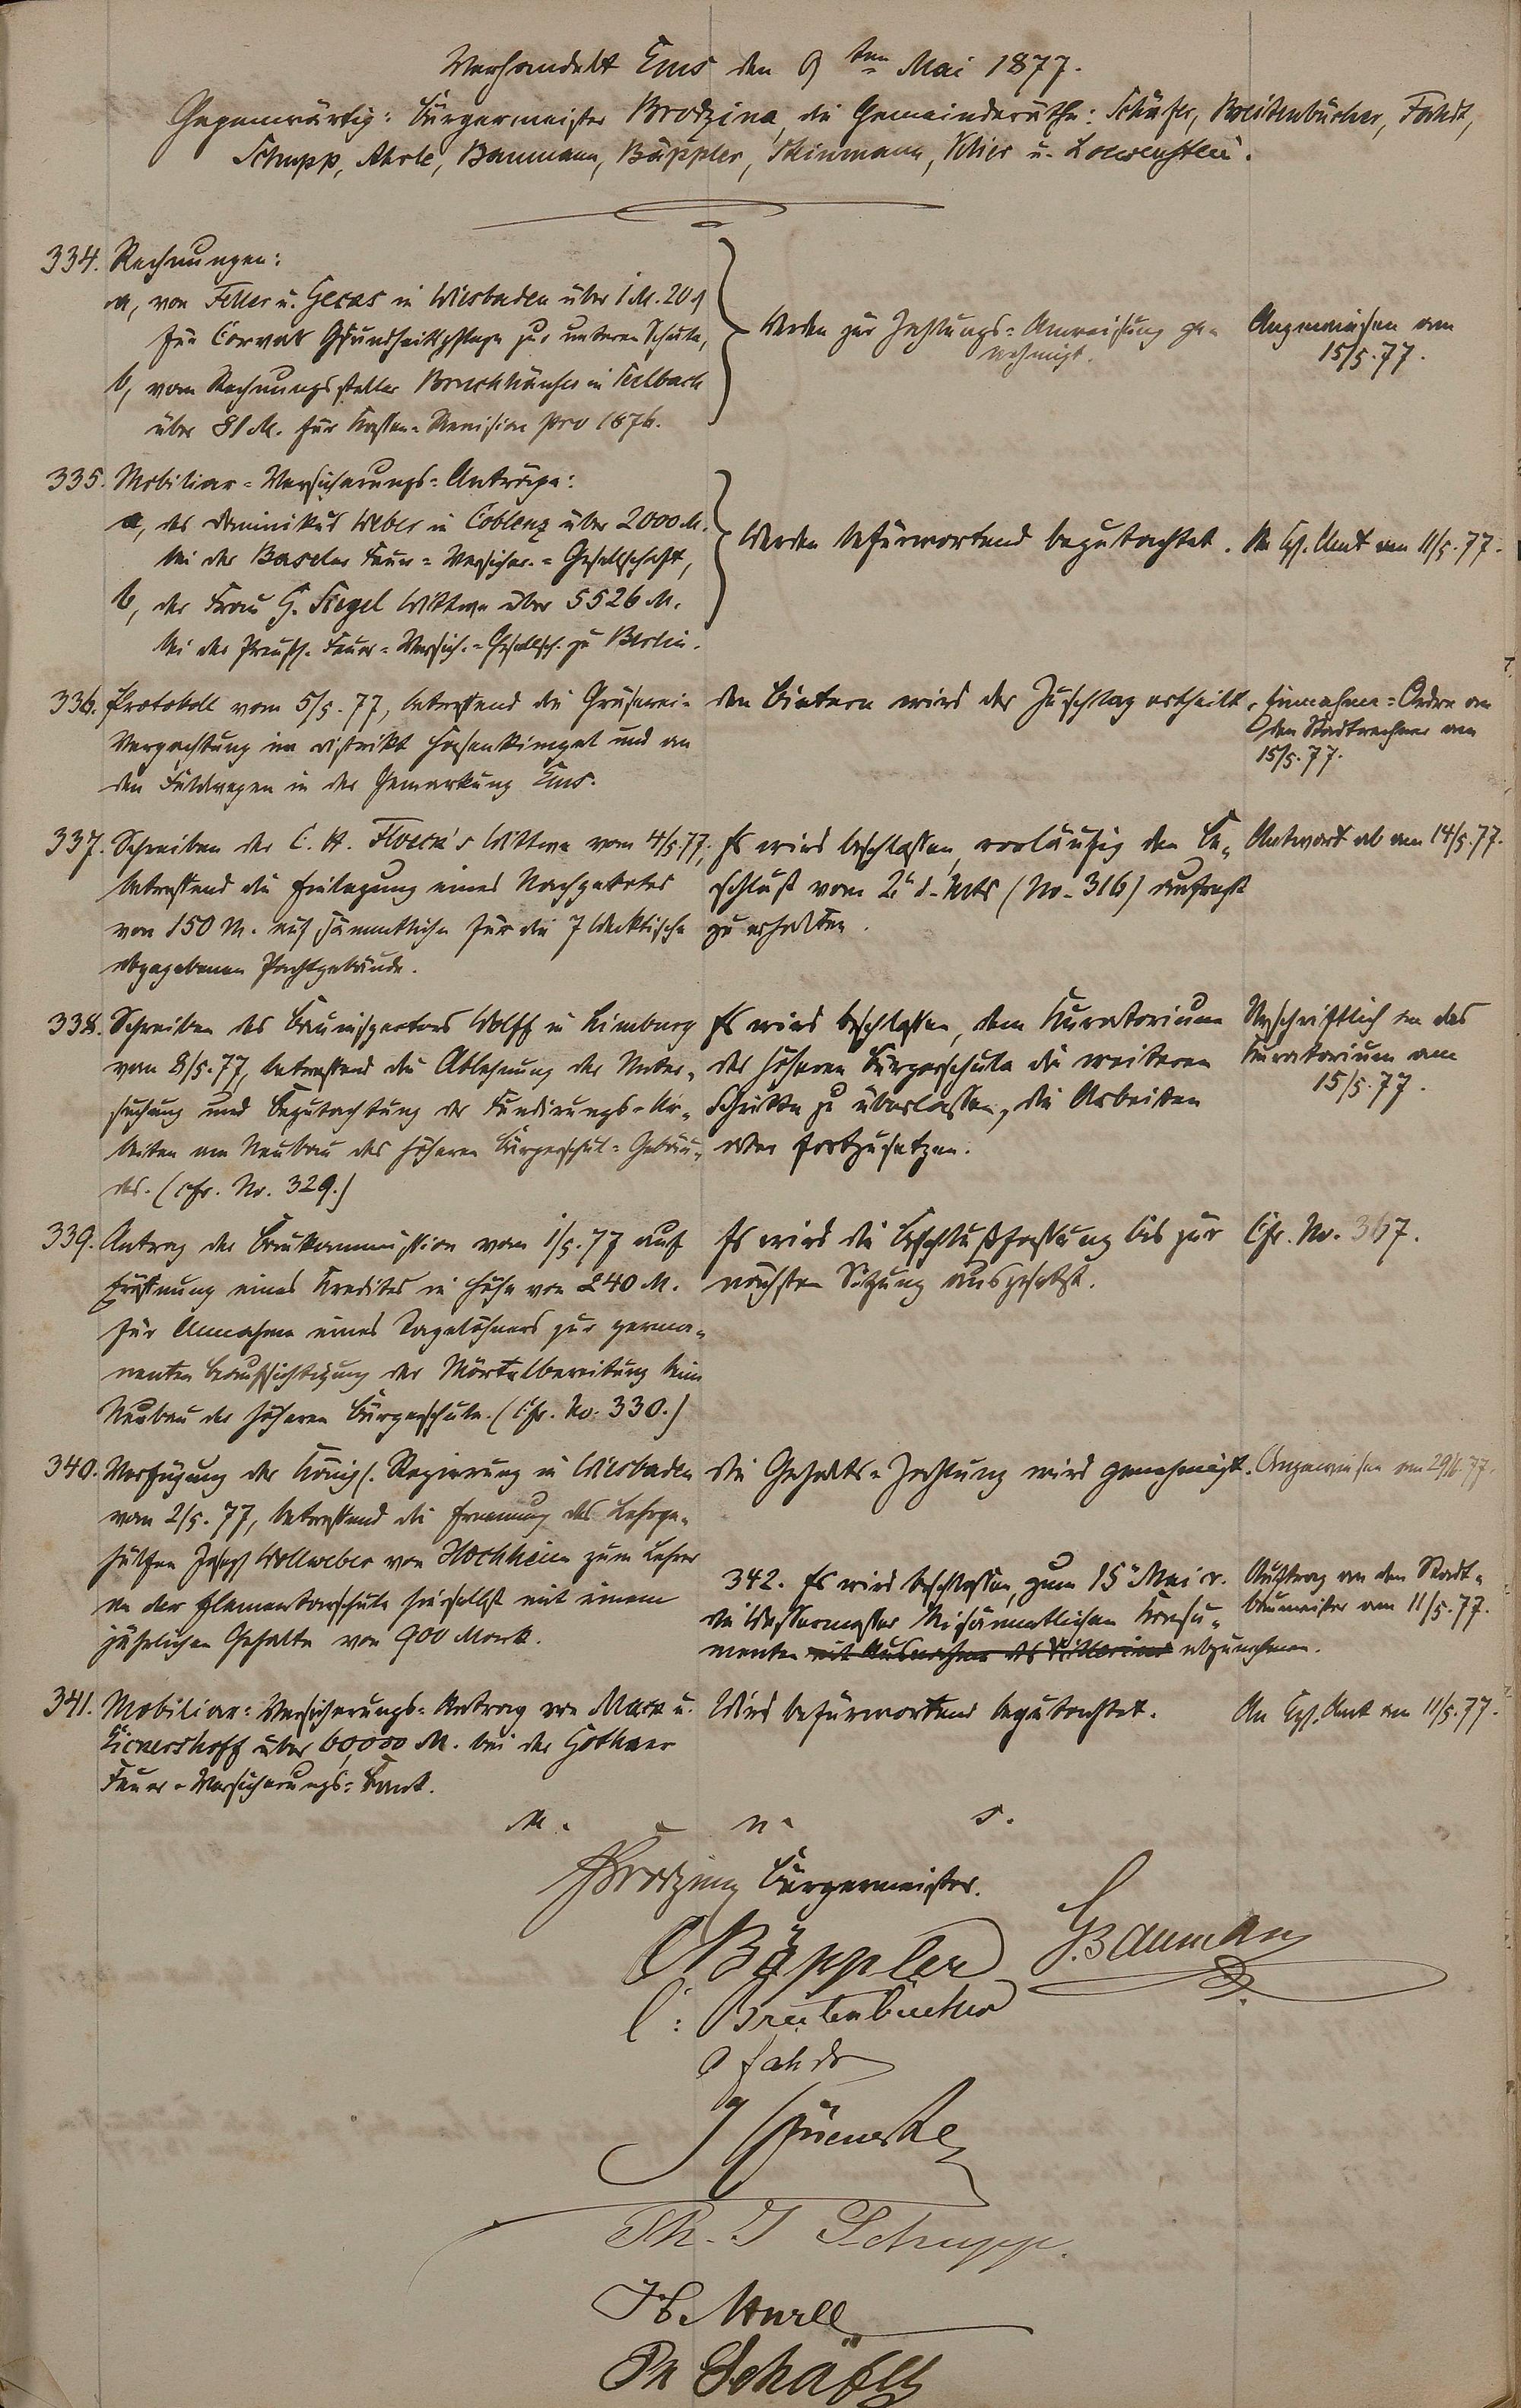 Verhandelt Ems den 9ten Mai 1877.
Gegenwärtig: Bürgermeister Brodzina, die Gemeinderäthe: Schäfer, Breitenbücher, Fahdt,
Schupp, Ahrle, Baumann, Bäppler, Thiemann, Klier u. Loewenstein.
334. Rechnungen:
a, von Feller u. Gecks in Wiesbaden über 1 M. 20 ₰
für Corval Gesundheitspflege zur unteren Schule,
b, vom Rechnungssteller Bruchhäuser in Seelbach
über 81 M. für Kassen-Revision pro 1876.
Werden zur Zahlungs-Anweisung ge-
nehmigt.
Angewiesen am
15/5.77.
335. Mobiliar-Versicherungs-Anträge:
a, des Dominikus Weber in Coblenz über 2000 M.
bei der Baseler Feuer-Versicher.-Gesellschaft,
b, der Frau G. Siegel Wittwe über 5526 M.
bei der Preuß. Feuer-Versich.-Gesellsch. zu Berlin.
Werden befürwortend begutachtet.
An Kgl. Amt am 11/5.77.
336. Protokoll vom 5/5.77, betreffend die Gräserei-
Verpachtung im Distrikt Hasenkümpel und an
den Feldwegen in der Gemarkung Ems.
Den Bietern wird der Zuschlag ertheilt.
Einnahme-Ordre an
den Stadtrechner am
15/5.77.
337. Schreiben der C. H. Flöck's Wittwe vom 4/5.77,
betreffend die Einlegung eines Nachgebotes
von 150 M. auf sämmtliche für die 7 Werktische
abgegebenen Pachtgebände.
Es wird beschlossen, vorläufig den Be-
schluß vom 2. d. Mts (No. 316) aufrecht
zu erhalten.
Antwort ab am 14/5.77.
338. Schreiben des Bauinspectors Wolff in Limburg
vom 8/5.77, betreffend die Ablehnung der Unter-
suchung und Begutachtung der Fundirungs-Ar-
beiten am Neubau des höheren Bürgerschul-Gebäu-
des. (cfr. No. 329.)
Es wird beschlossen, dem Kuratorium
der höheren Bürgerschule die weiteren
Schritte zu überlassen, die Arbeiten
aber fortzusetzen.
Urschriftlich an das
Kuratorium am
15/5.77.
339. Antrag der Baukommission vom 1/5.77 auf
Eröffnung eines Kredites in Höhe von 240 M.
für Annahme eines Tagelöhners zur perma-
nenten Beaufsichtigung der Mörtelbereitung beim
Neubau der höheren Bürgerschule. (Cfr. No. 330.)
Es wird die Beschlußfassung bis zur
nächsten Sitzung ausgesetzt.
Cfr. No. 367.
340. Verfügung der Königl. Regierung in Wiesbaden
vom 2/5.77, betreffend die Ernennung des Lehrge-
hülfen Joseph Wollweber von Hochheim zum Lehrer
an der Elementarschule hierselbst mit einem
jährlichen Gehalte von 900 Mark.
Die Gehalts-Zahlung wird genehmigt.
Angewiesen am 29/6.77.
342. Es wird beschlossen, zum 15. Mai cr.
die Wassermesser bei sämmtlichen Konsu-
menten mit Ausnahme des abzunehmen.
Auftrag an den Stadt-
baumeister am 11/5.77.
341. Mobiliar-Versicherungs-Antrag von Marx u.
Bickershoff über 60,000 M. bei der Gothaer
Feuer-Versicherungs-Bank.
Wird befürwortend begutachtet.
An Kgl. Amt am 11/5.77.
M. n. s.
Brodzina Bürgermeister.
C Bäppler
G. Baumann
C: Breitenbücher
Fahdt
Ph. J Schupp.
Ph Schäfer